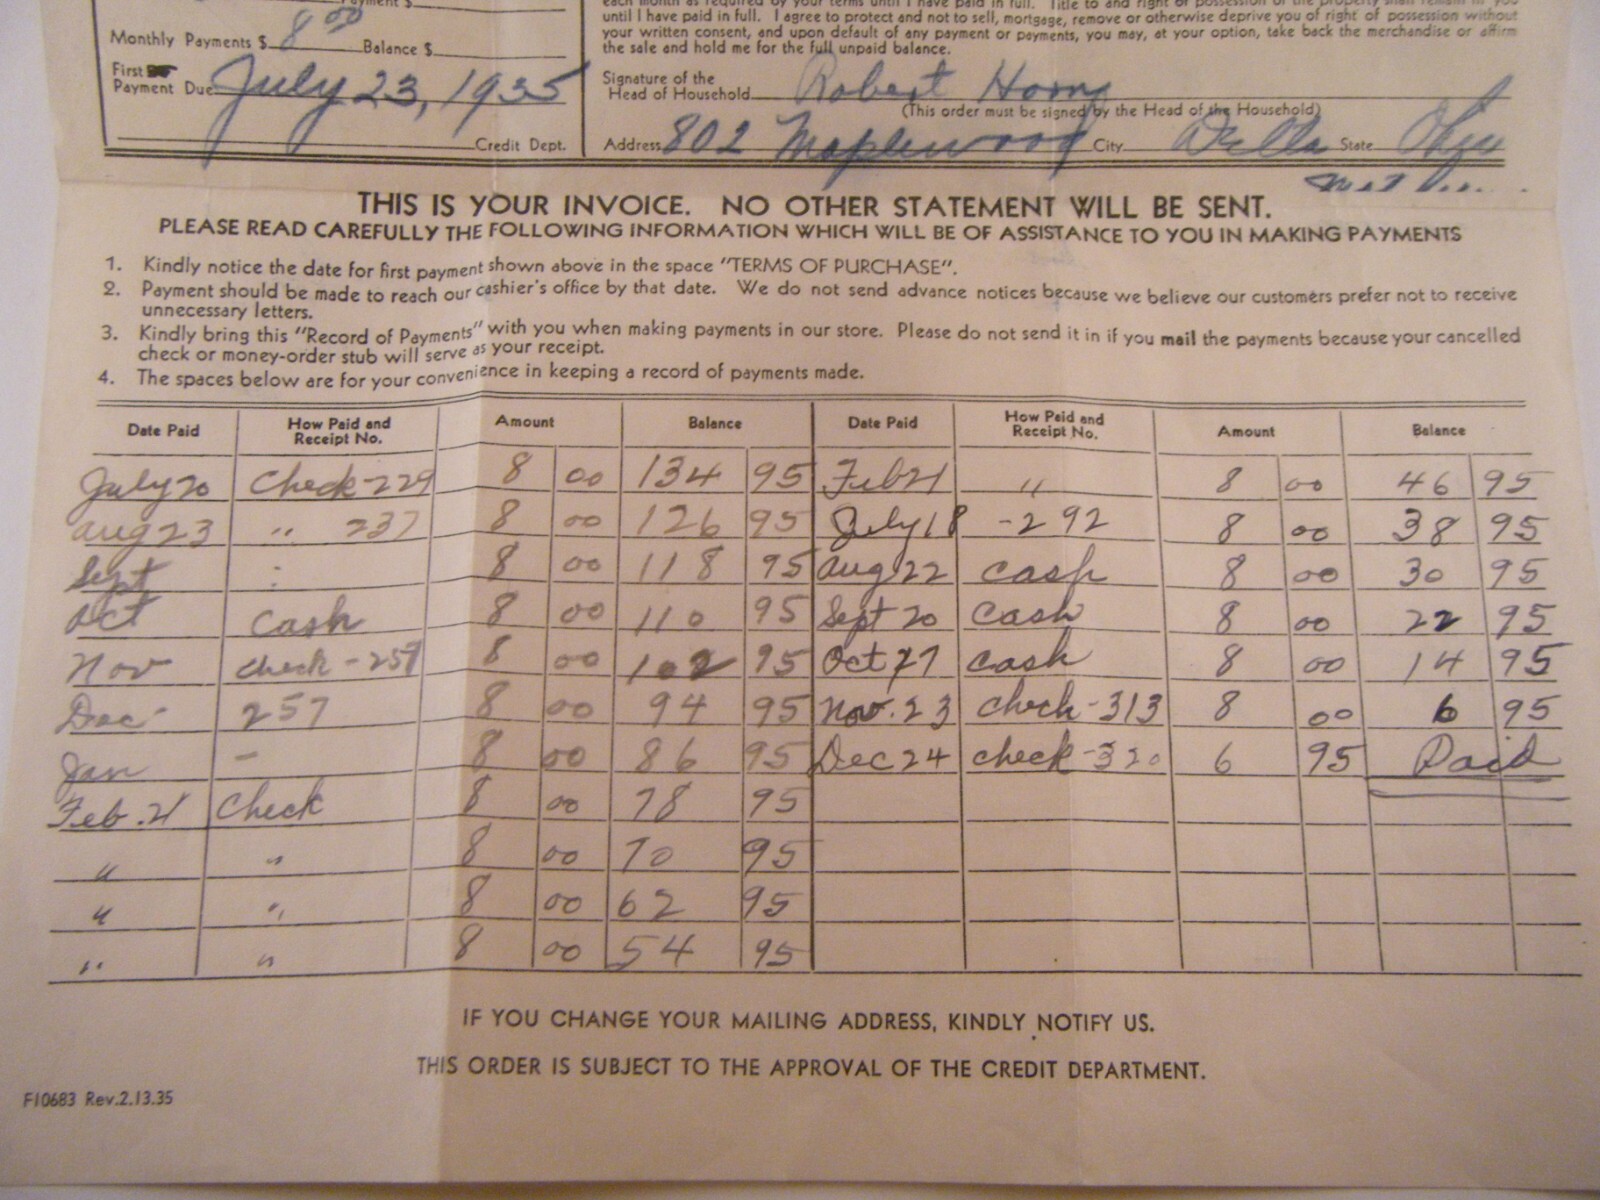 Payment $
Monthly Payments $ 8 00 Balance $
First
Payment Due July 23, 1935
Credit Dept.
each month as required by your terms until I have paid in full. Title to and right of possession of the property shall remain in you
until I have paid in full. I agree to protect and not to sell, mortgage, remove or otherwise deprive you of right of possession without
your written consent, and upon default of any payment or payments, you may, at your option, take back the merchandise or affirm
the sale and hold me for the full unpaid balance.
Signature of the
Head of Household Robert Horn
(This order must be signed by the Head of the Household)
Address 802 Maplewood City Della State Ohio
THIS IS YOUR INVOICE. NO OTHER STATEMENT WILL BE SENT.
PLEASE READ CAREFULLY THE FOLLOWING INFORMATION WHICH WILL BE OF ASSISTANCE TO YOU IN MAKING PAYMENTS
1. Kindly notice the date for first payment shown above in the space "TERMS OF PURCHASE".
2. Payment should be made to reach our cashier's office by that date. We do not send advance notices because we believe our customers prefer not to receive
unnecessary letters.
3. Kindly bring this "Record of Payments" with you when making payments in our store. Please do not send it in if you mail the payments because your cancelled
check or money-order stub will serve as your receipt.
4. The spaces below are for your convenience in keeping a record of payments made.
Date Paid How Paid and Receipt No. Amount Balance Date Paid How Paid and Receipt No. Amount Balance
July 20 Check-229 8 00 134 95 Feb 21 " 8 00 46 95
Aug 23 " 237 8 00 126 95 July 18 -292 8 00 38 95
Sept : 8 00 118 95 Aug 22 cash 8 00 30 95
Oct Cash 8 00 110 95 Sept 20 Cash 8 00 22 95
Nov check-251 8 00 102 95 Oct 27 Cash 8 00 14 95
Dec 257 8 00 94 95 Nov. 23 check-313 8 00 6 95
Jan - 8 00 86 95 Dec 24 check-320 6 95 Paid
Feb. 21 Check 8 00 78 95
" " 8 00 70 95
" " 8 00 62 95
" " 8 00 54 95
IF YOU CHANGE YOUR MAILING ADDRESS, KINDLY NOTIFY US.
THIS ORDER IS SUBJECT TO THE APPROVAL OF THE CREDIT DEPARTMENT.
F10683 Rev.2.13.35